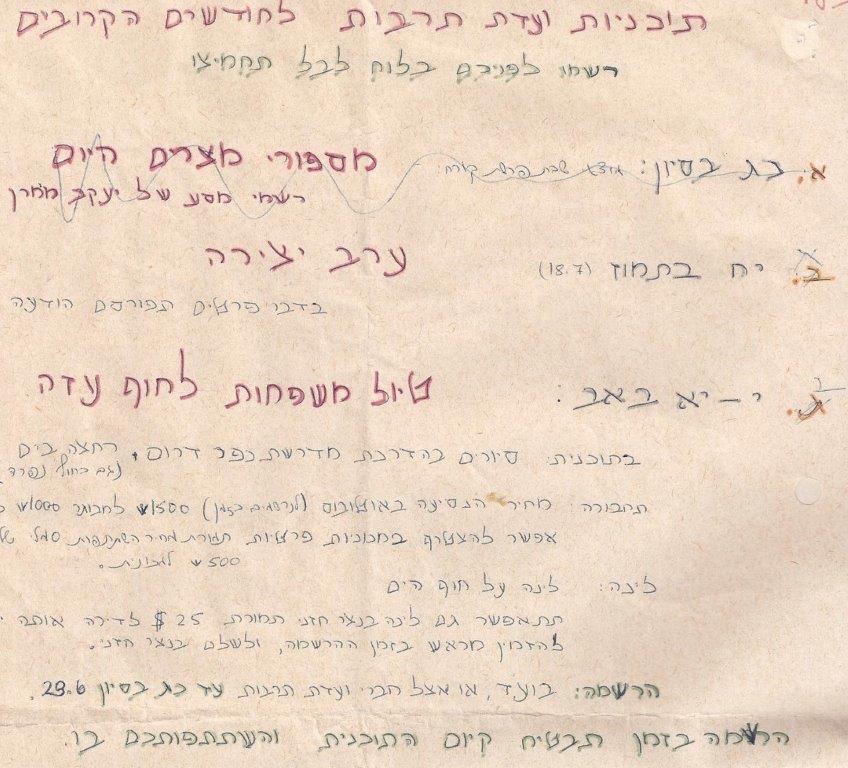 תוכניות ועדת תרבות לחודשים הקרובים
רשמו לפניכם בלוח לבל תחמיצו
א. כת בסיון: מוצאי שבת פרשת קורח: מספורי מצרים היום
רשמי מסע של יעקב
ב. יח בתמוז (18.7) ערב יצירה
בדבר פרטים תפורסם הודעה
י-יא באב: טיול משפחות לחוף עזה
בתוכנית: סיורים בהדרכת מדרשת כפר דרום, רחצה בים
(גם בחוף נפרד
תחבורה: מחיר הנסיעה באוטובוס (לנרשמים בזמן) 1500 למבוגר 1000
אפשר להצטרף במכוניות פרטיות תמורת מחיר השתתפות סמלי של
500 למכונית.
לינה: לינה על חוף הים
תתאפשר גם לינה בנצר חזני תמורת 25 $ לדירה אותה
להזמין מראש בזמן ההרשמה, ולשלם בנצר חזני.
הרשמה: בועד, או אצל חברי ועדת תרבות עד כת בסיון 23.6.
הרשמה בזמן תבטיח קיום התוכנית והשתתפותכם בו.